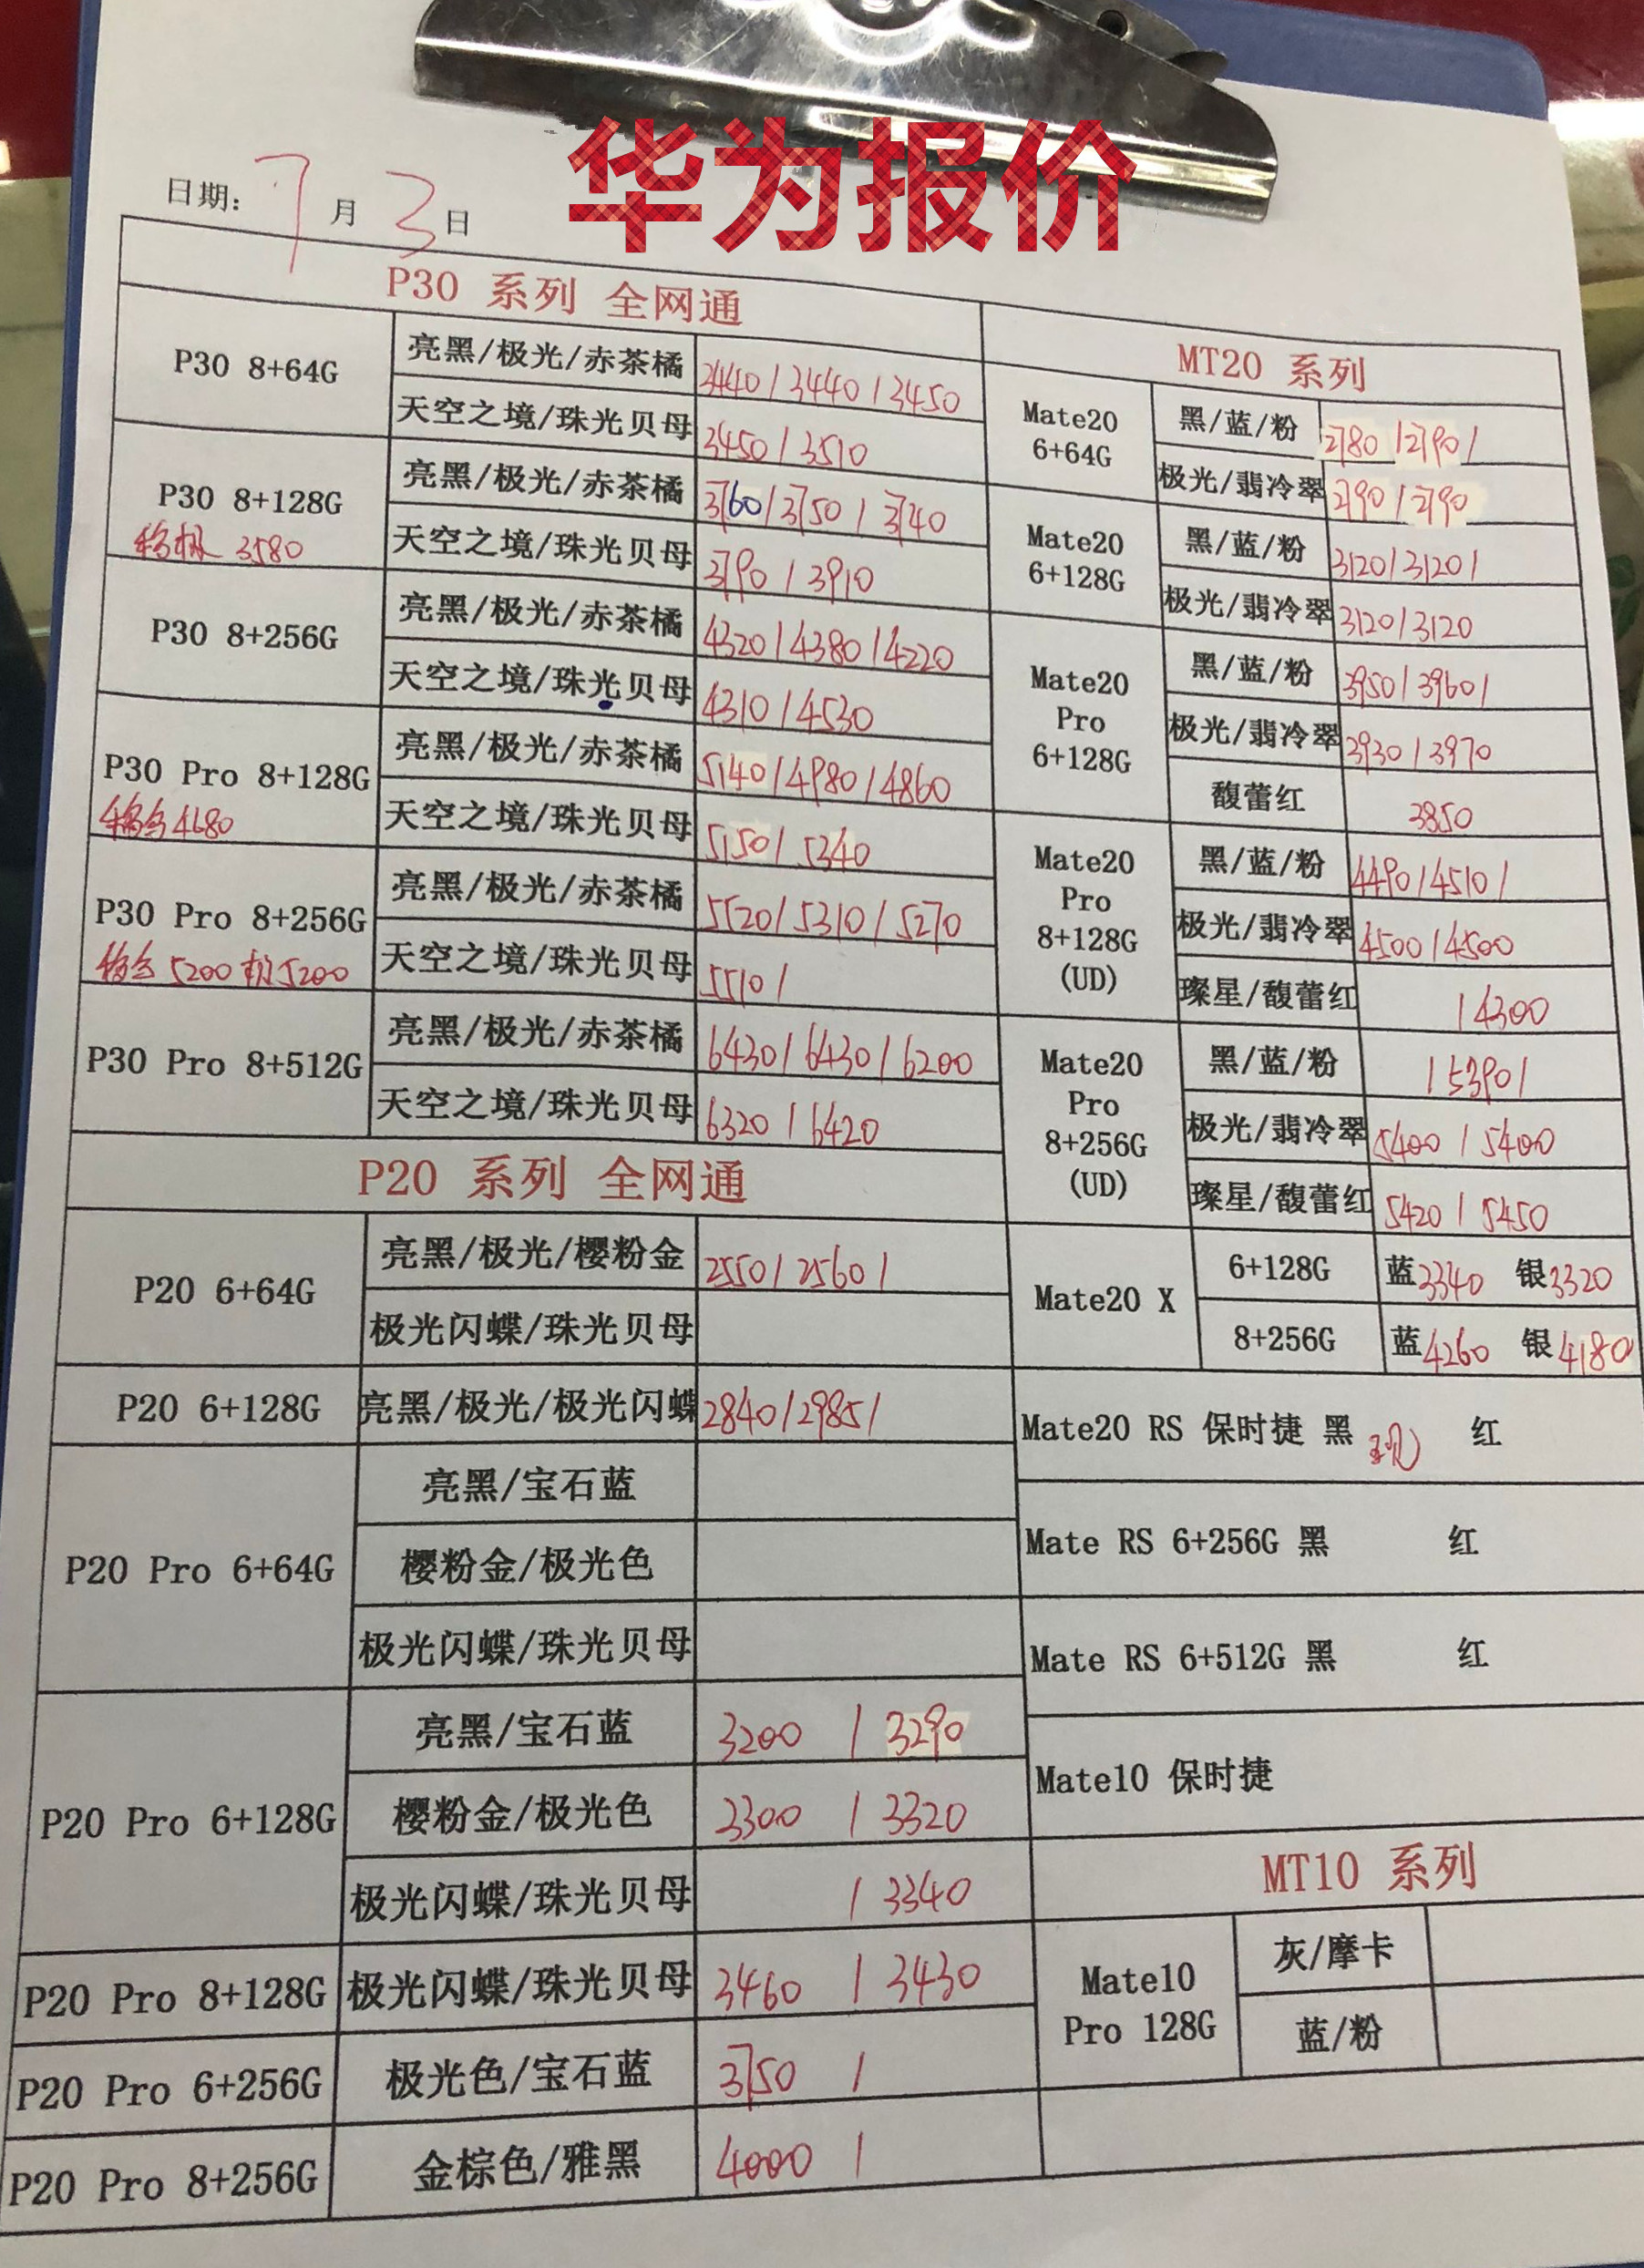 华为报价
日期: 7 月 3 日
P30 系列 全网通
P30 8+64G
亮黑/极光/赤茶橘 3440/3440/3450
天空之境/珠光贝母 3450/3510
P30 8+128G
3580
亮黑/极光/赤茶橘 3760/3750/3740
天空之境/珠光贝母 3790/3910
P30 8+256G
亮黑/极光/赤茶橘 4320/4380/4220
天空之境/珠光贝母 4310/4530
P30 Pro 8+128G
4680
亮黑/极光/赤茶橘 5140/4980/4860
天空之境/珠光贝母 5150/5340
P30 Pro 8+256G
5200 5200
亮黑/极光/赤茶橘 5520/5310/5270
天空之境/珠光贝母 5510/
P30 Pro 8+512G
亮黑/极光/赤茶橘 6430/6430/6200
天空之境/珠光贝母 6320/6420
P20 系列 全网通
P20 6+64G
亮黑/极光/樱粉金 2550/2560/
极光闪蝶/珠光贝母
P20 6+128G 亮黑/极光/极光闪蝶 2840/2985/
P20 Pro 6+64G
亮黑/宝石蓝
樱粉金/极光色
极光闪蝶/珠光贝母
P20 Pro 6+128G
亮黑/宝石蓝 3200 / 3290
樱粉金/极光色 3300 / 3320
极光闪蝶/珠光贝母 / 3340
P20 Pro 8+128G 极光闪蝶/珠光贝母 3460 / 3430
P20 Pro 6+256G 极光色/宝石蓝 3750 /
P20 Pro 8+256G 金棕色/雅黑 4000 /
MT20 系列
Mate20
6+64G
黑/蓝/粉 2780/2790/
极光/翡冷翠 2790/2790
Mate20
6+128G
黑/蓝/粉 3120/3120/
极光/翡冷翠 3120/3120
Mate20
Pro
6+128G
黑/蓝/粉 3950/3960/
极光/翡冷翠 3930/3970
馥蕾红 3850
Mate20
Pro
8+128G
(UD)
黑/蓝/粉 4490/4510/
极光/翡冷翠 4500/4500
璨星/馥蕾红 /4300
Mate20
Pro
8+256G
(UD)
黑/蓝/粉 /5390/
极光/翡冷翠 5400/5400
璨星/馥蕾红 5420/5450
Mate20 X
6+128G 蓝3340 银3320
8+256G 蓝4260 银4180
Mate20 RS 保时捷 黑 现 红
Mate RS 6+256G 黑 红
Mate RS 6+512G 黑 红
Mate10 保时捷
MT10 系列
Mate10
Pro 128G
灰/摩卡
蓝/粉